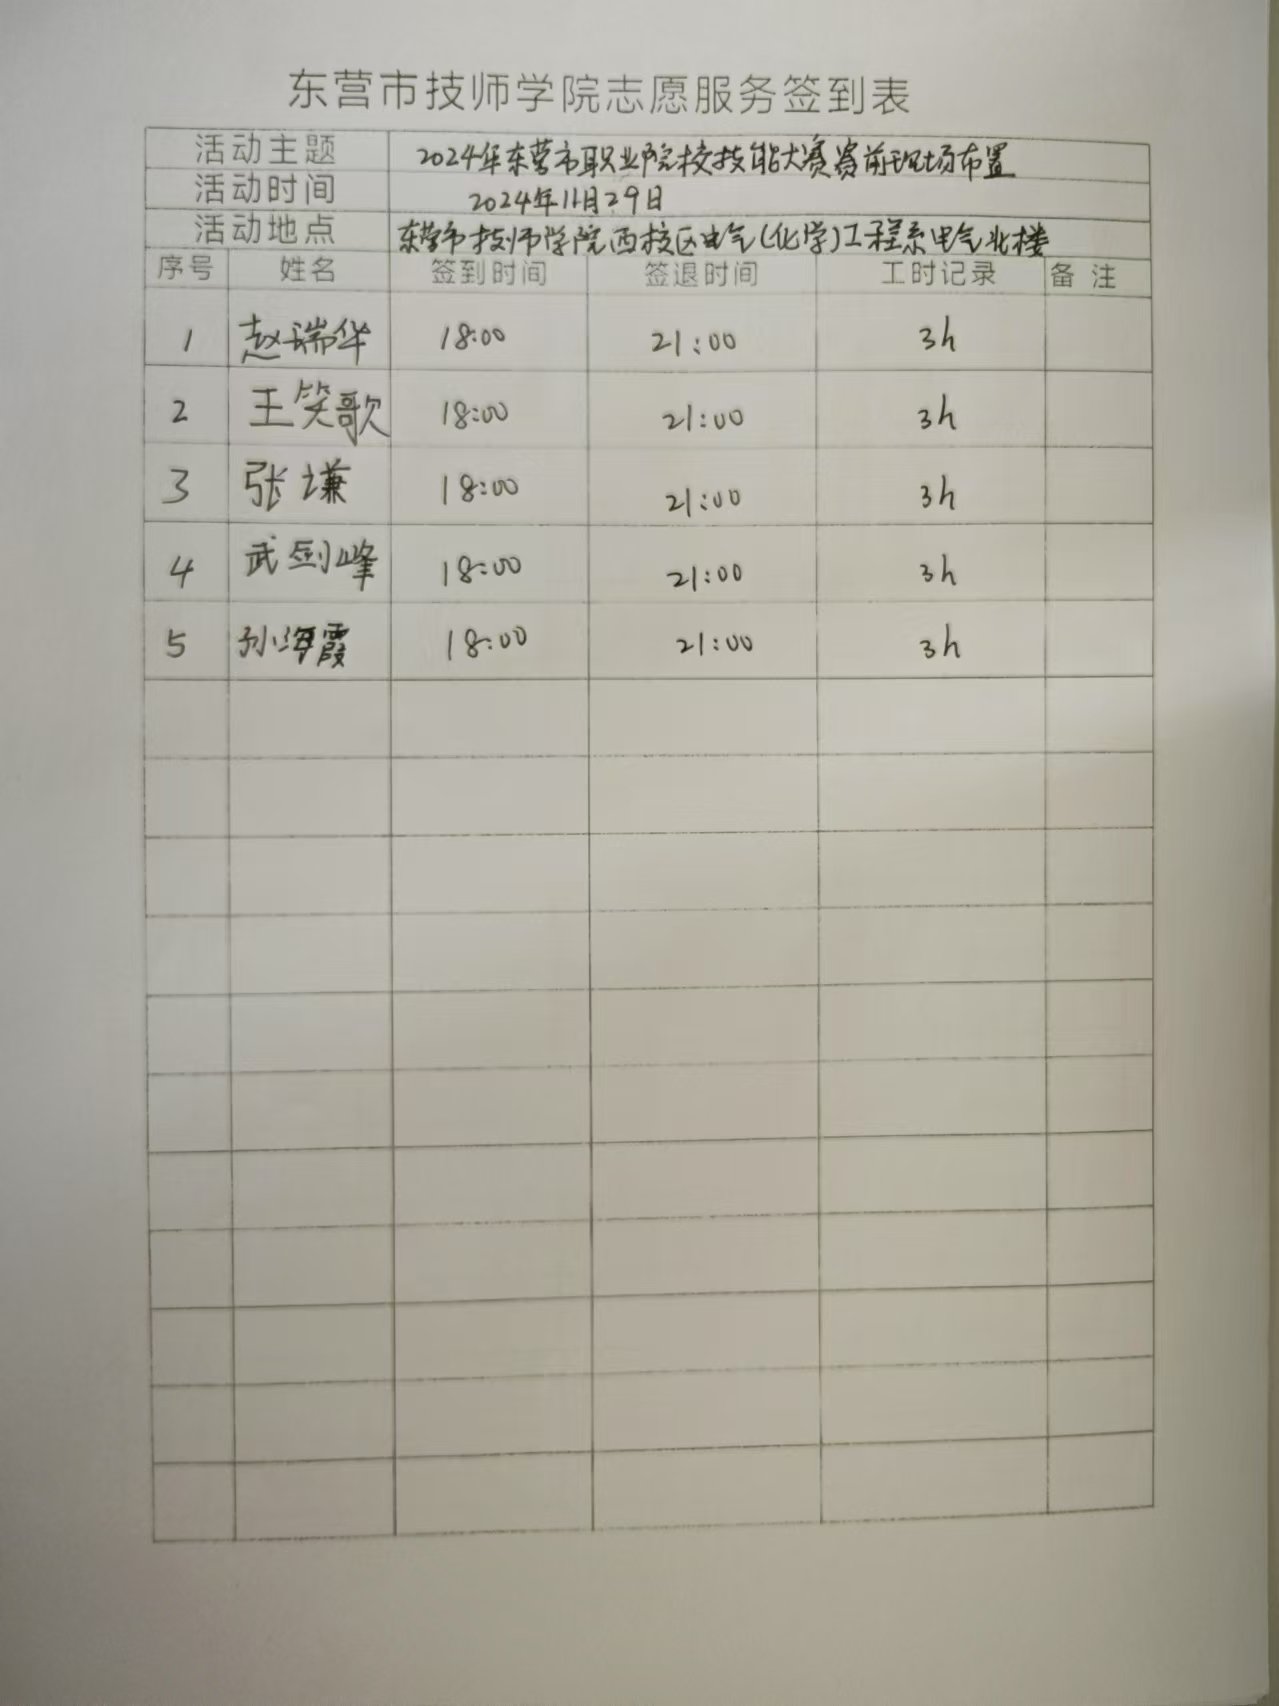 东营市技师学院志愿服务签到表
活动主题 2024年东营市职业院校技能大赛赛前现场布置
活动时间 2024年11月29日
活动地点 东营市技师学院西校区电气(化学)工程系电气北楼
序号 姓名 签到时间 签退时间 工时记录 备 注
1 赵瑞华 18:00 21:00 3h
2 王笑歌 18:00 21:00 3h
3 张谦 18:00 21:00 3h
4 武剑峰 18:00 21:00 3h
5 孙海霞 18:00 21:00 3h